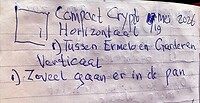 Compact Crypto mei 2026
Horizontaal 19
1) Tussen Ermelo en Garderen
Verticaal
1) Zoveel gaan er in de pan